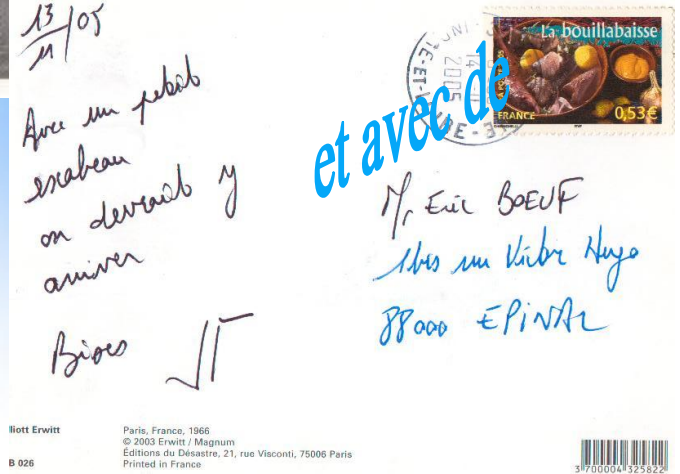 13/11/05
Avec un petit
escabeau
on devrait y
arriver
Bises
et avec de
La bouillabaisse
LA POSTE
FRANCE
0,53€
14
2005
M, Eric BOEUF
1bis rue Victor Hugo
88000 EPINAL
lliott Erwitt
B 026
Paris, France, 1966
© 2003 Erwitt / Magnum
Éditions du Désastre, 21, rue Visconti, 75006 Paris
Printed in France
3 700004 325822